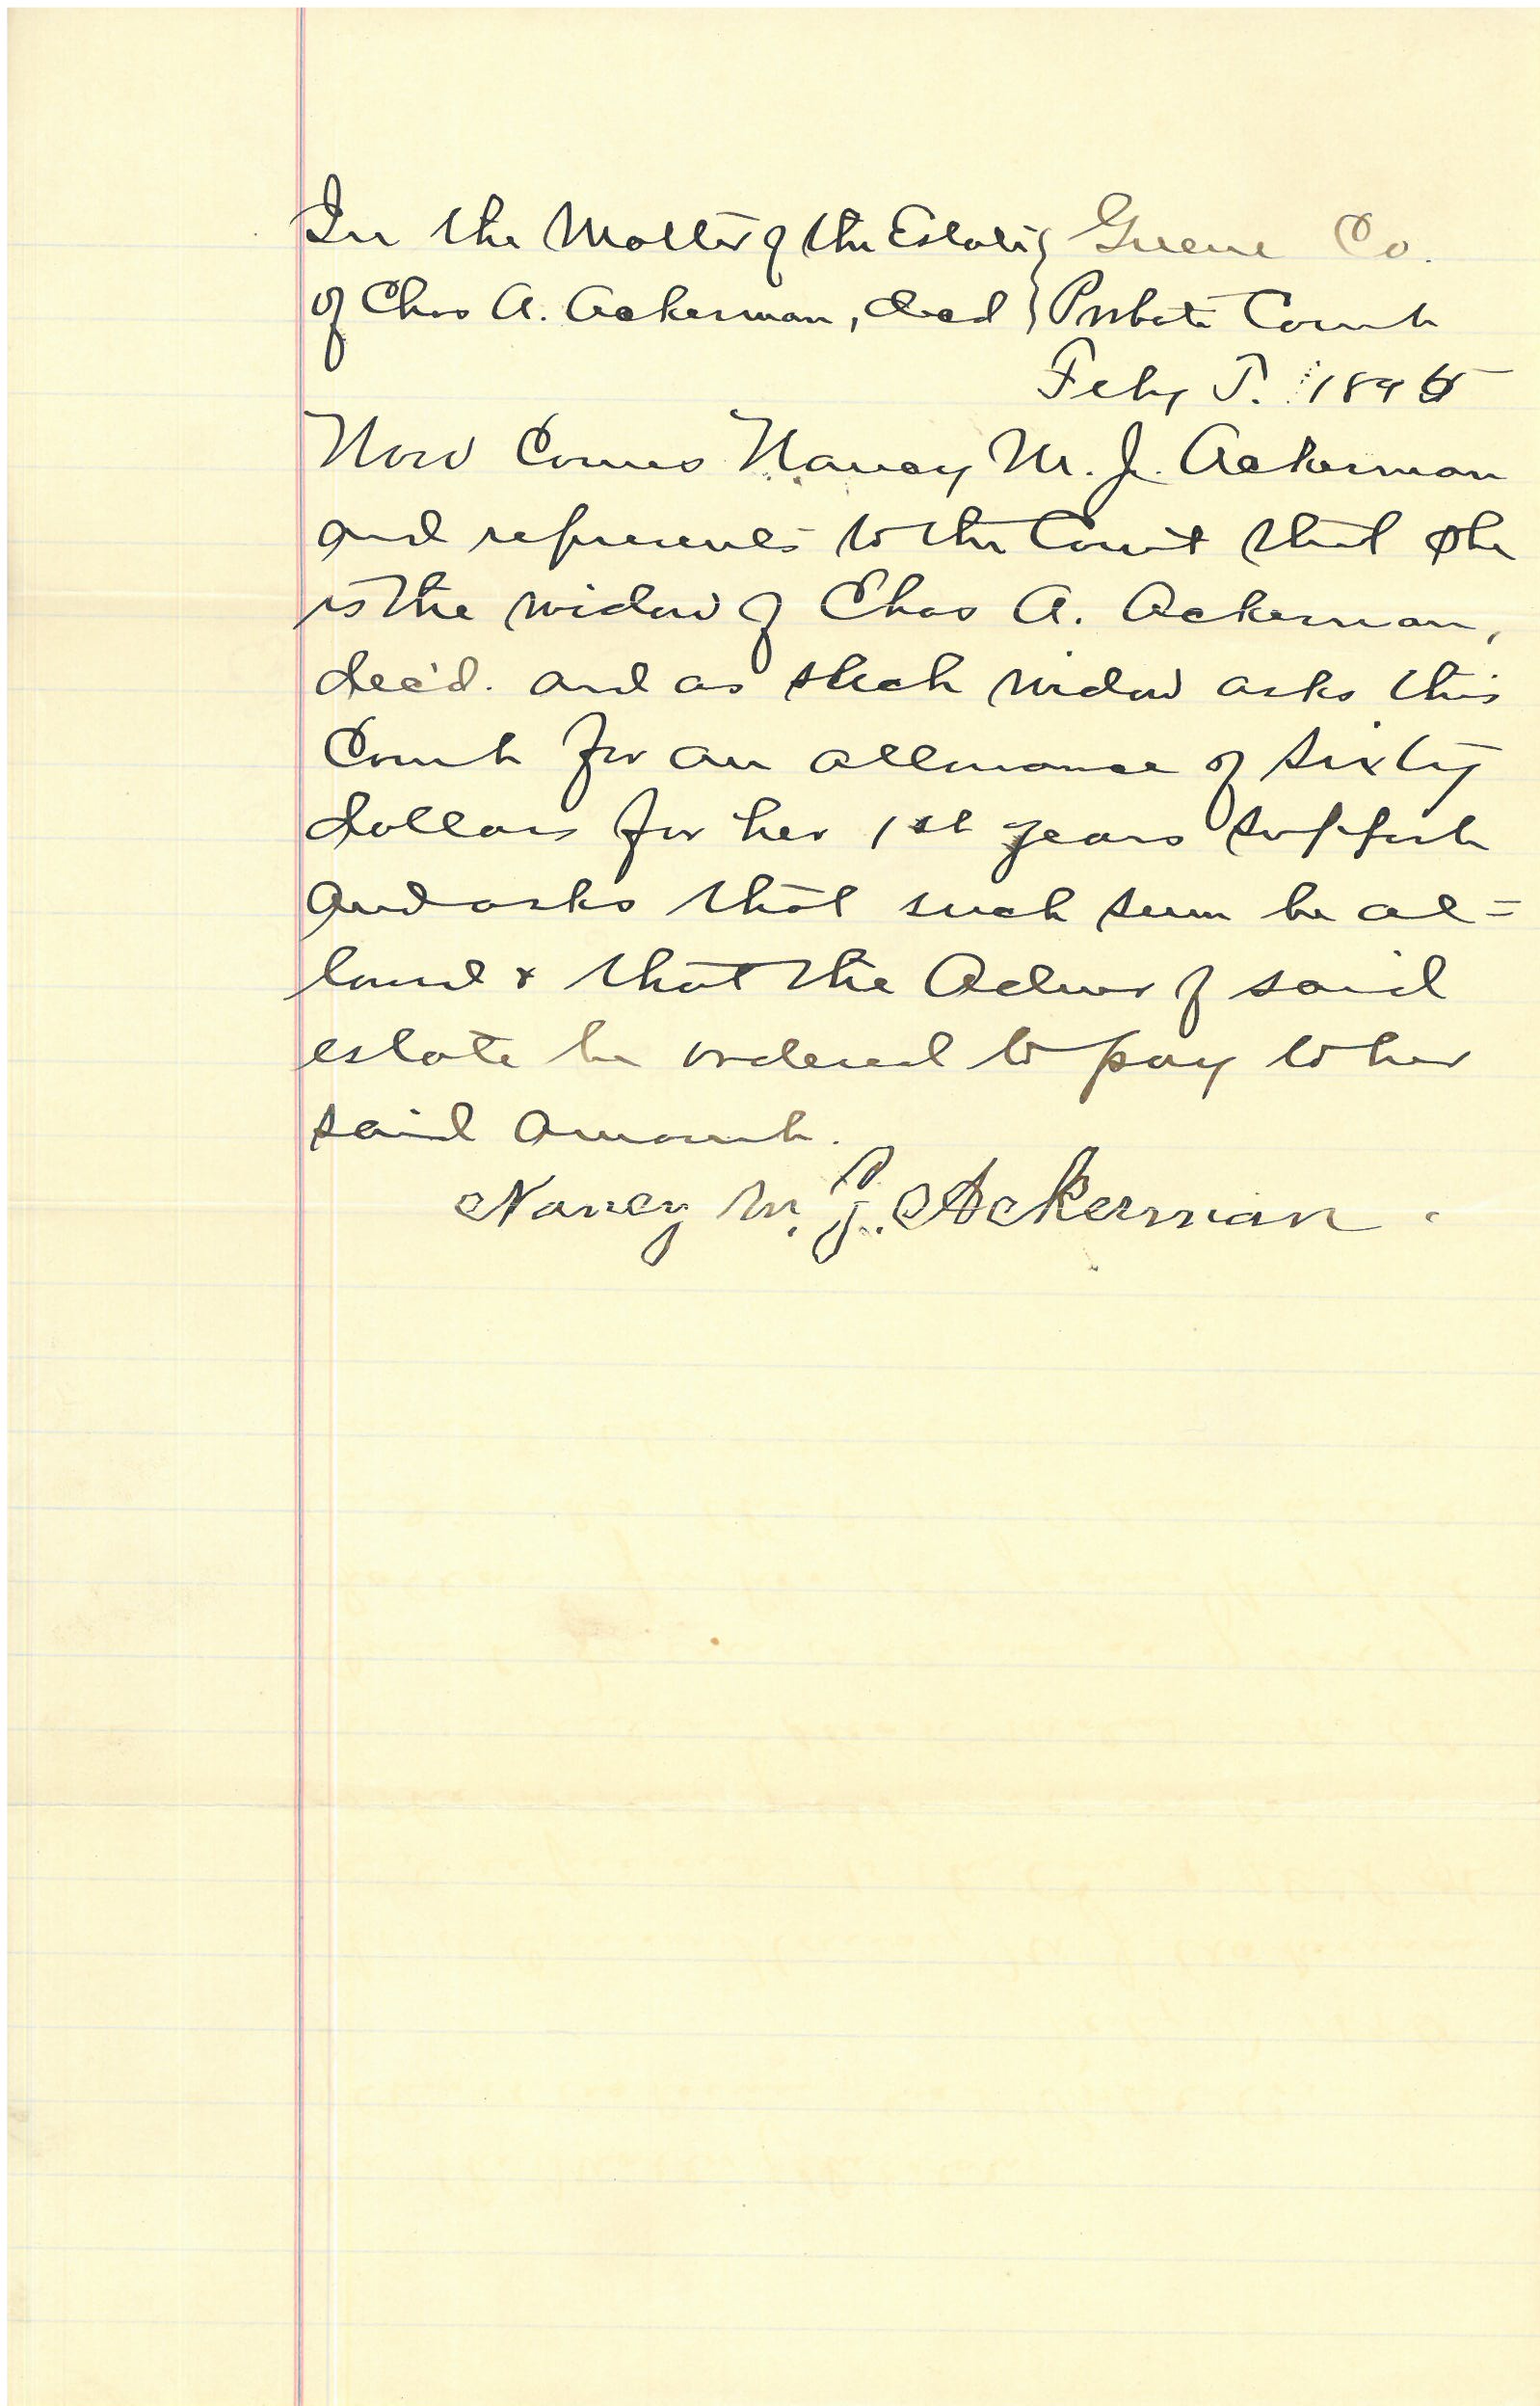 In the Matter of the Estate } Greene Co.
of Chas A. Ackerman, decd } Probate Court
Feby T. 1895
Now Comes Nancy M. J. Ackerman
and represents to the Court that she
is the widow of Chas A. Ackerman,
dec'd. and as such widow asks this
Court for an allowance of sixty
dollars for her 1st years support
and asks that such sum be al=
lowed & that the Admr of said
estate be ordered to pay to her
said amount.
Nancy M. J. Ackerman.